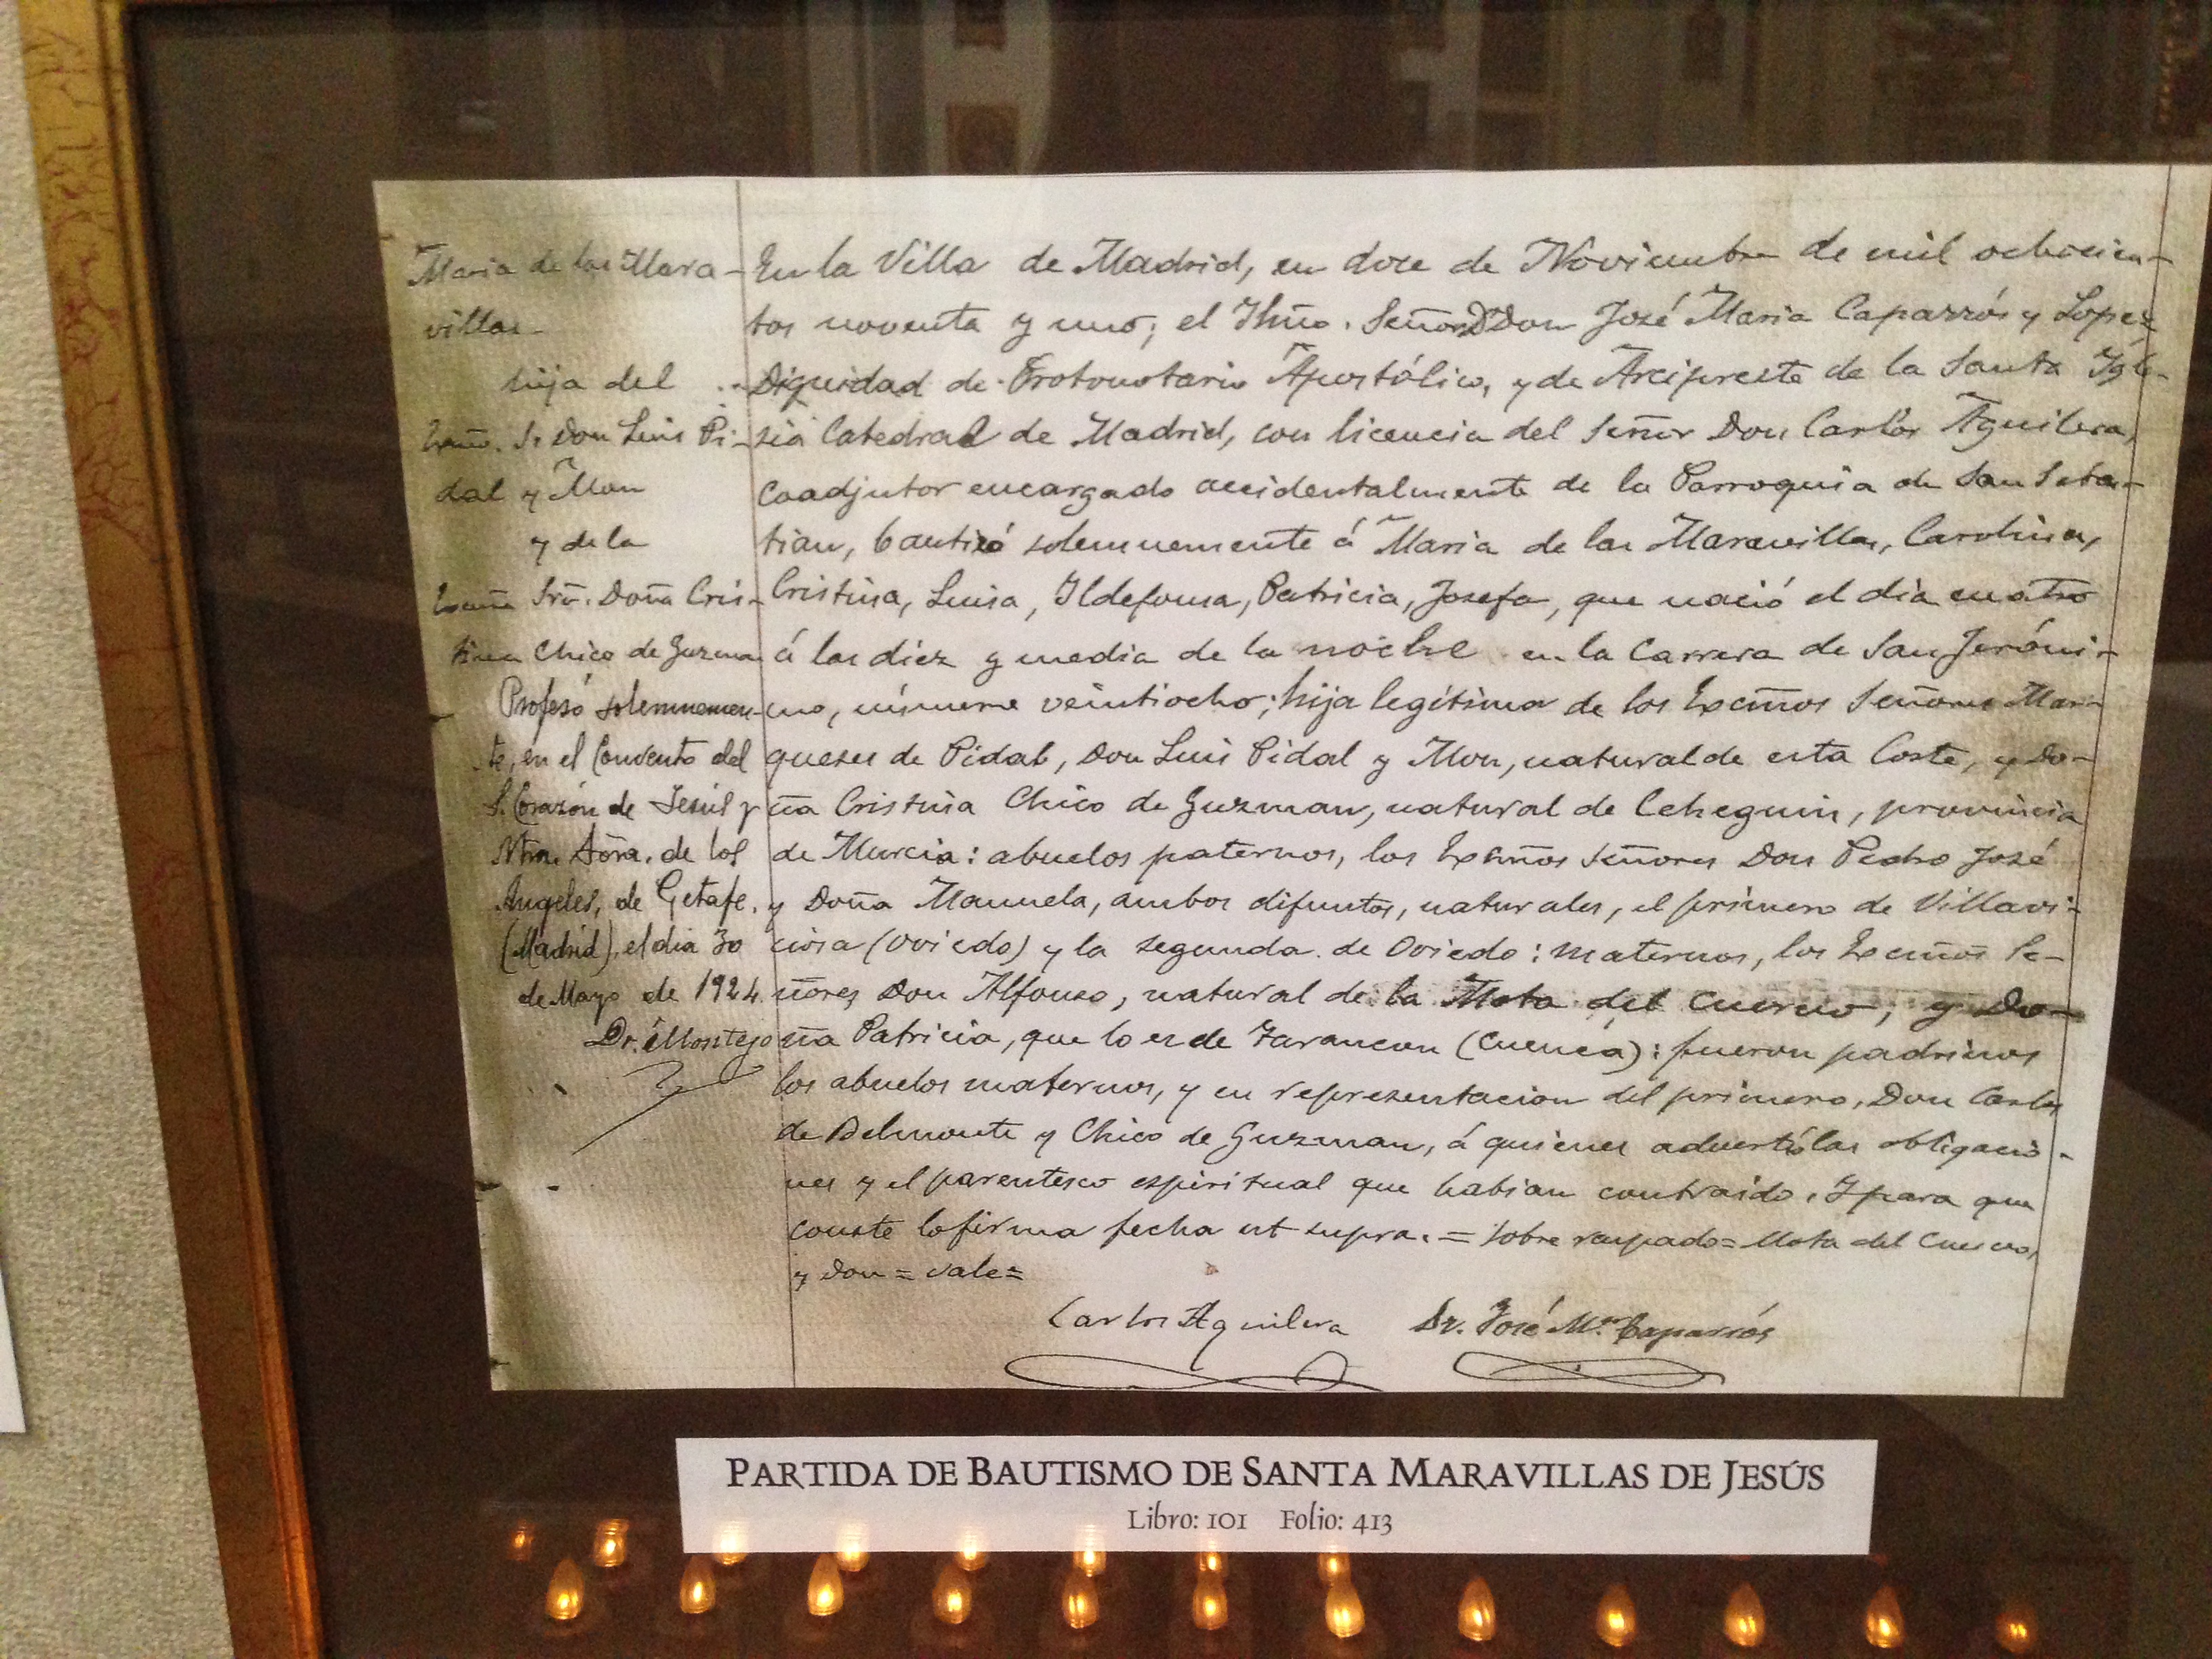 Maria de las Mara-
villas
hija del
Excmo. Sr Don Luis Pi-
dal y Mon
y de la
Excma Sra. Doña Cris-
tina Chico de Guzman
Profesó solemnemen-
te, en el Convento del
S. Corazón de Jesús y
Ntra. Sõra. de los
Angeles, de Getafe,
(Madrid), el dia 30
de Mayo de 1924.
Dr. Montejo
En la Villa de Madrid, en doce de Noviembre de mil ochocien-
tos noventa y uno; el Ilmo. Señor Dr Don José Maria Caparrós y Lopez
Dignidad de Protonotario Apostólico, y de Arcipreste de la Santa Igle-
sia Catedral de Madrid, con licencia del Señor Don Carlos Aguilera,
Coadjutor encargado accidentalmente de la Parroquia de San Sebas-
tian, bautizó solemnemente á Maria de las Maravillas, Carolina,
Cristina, Luisa, Ildefonsa, Patricia, Josefa, que nació el dia cuatro
á las diez y media de la noche en la Carrera de San Jeróni-
mo, número veintiocho; hija legítima de los Excmos Señores Mar-
queses de Pidal, Don Luis Pidal y Mon, natural de esta Corte, y Do-
ña Cristina Chico de Guzman, natural de Cehegin, provincia
de Murcia: abuelos paternos, los Excmos Señores Don Pedro José
y Doña Manuela, ambos difuntos, naturales, el primero de Villavi-
ciosa (Oviedo) y la segunda de Oviedo: maternos, los Excmos Se-
ñores Don Alfonso, natural de la Mota del Cuervo, y Do-
ña Patricia, que lo es de Tarancon (Cuenca): fueron padrinos
los abuelos maternos, y en representacion del primero, Don Carlos
de Belmonte y Chico de Guzman, á quienes advertí las obligacio-
nes y el parentesco espiritual que habian contraido. Y para que
conste lo firma fecha ut supra. = Sobre raspado = Mota del Cuervo,
y Don = vale =
Carlos Aguilera Dr. José Mª Caparrós
PARTIDA DE BAUTISMO DE SANTA MARAVILLAS DE JESÚS
Libro: 101 Folio: 413